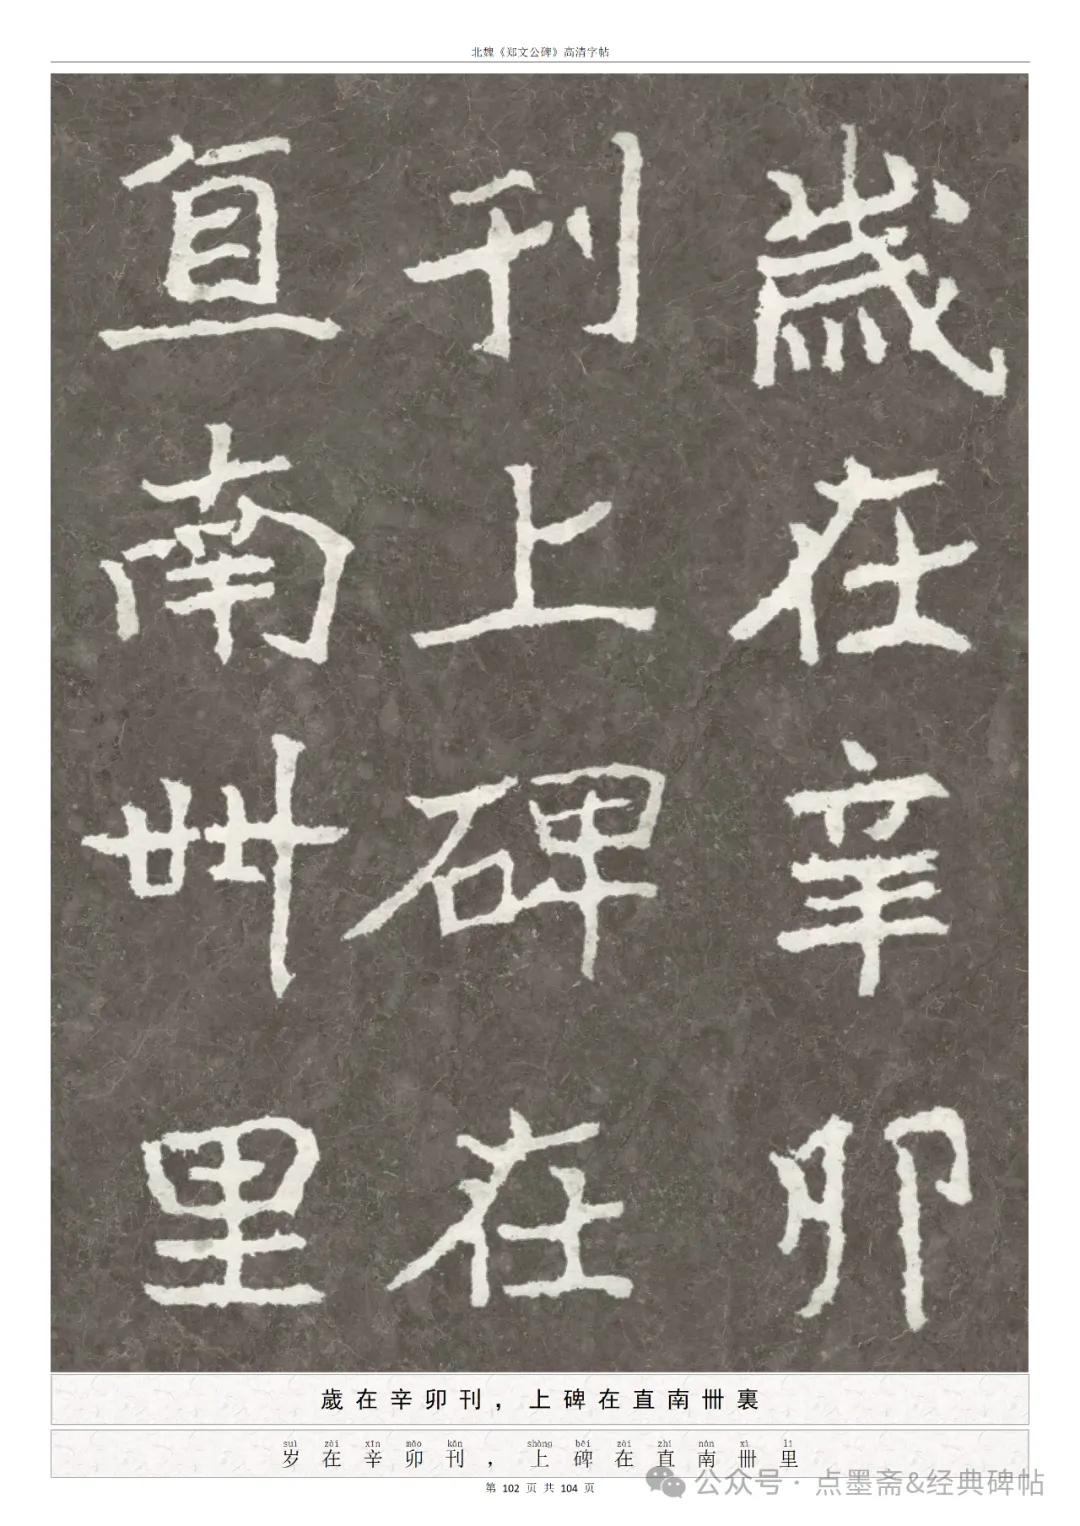 北魏《郑文公碑》高清字帖
歲在辛卯
刊上碑在
直南卌里
歲在辛卯刊，上碑在直南卌裏
suì zài xīn mǎo kān shàng bēi zài zhí nán xì lǐ
岁在辛卯刊，上碑在直南卌里
第 102 页 共 104 页
公众号 · 点墨斋&经典碑帖